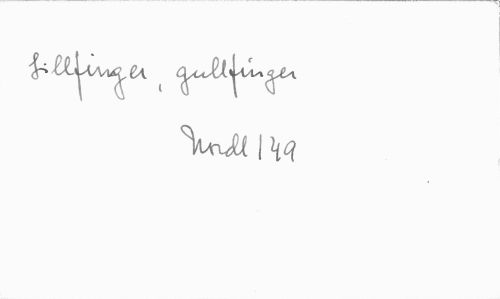 Lillfinger, gullfinger
Nordl 149